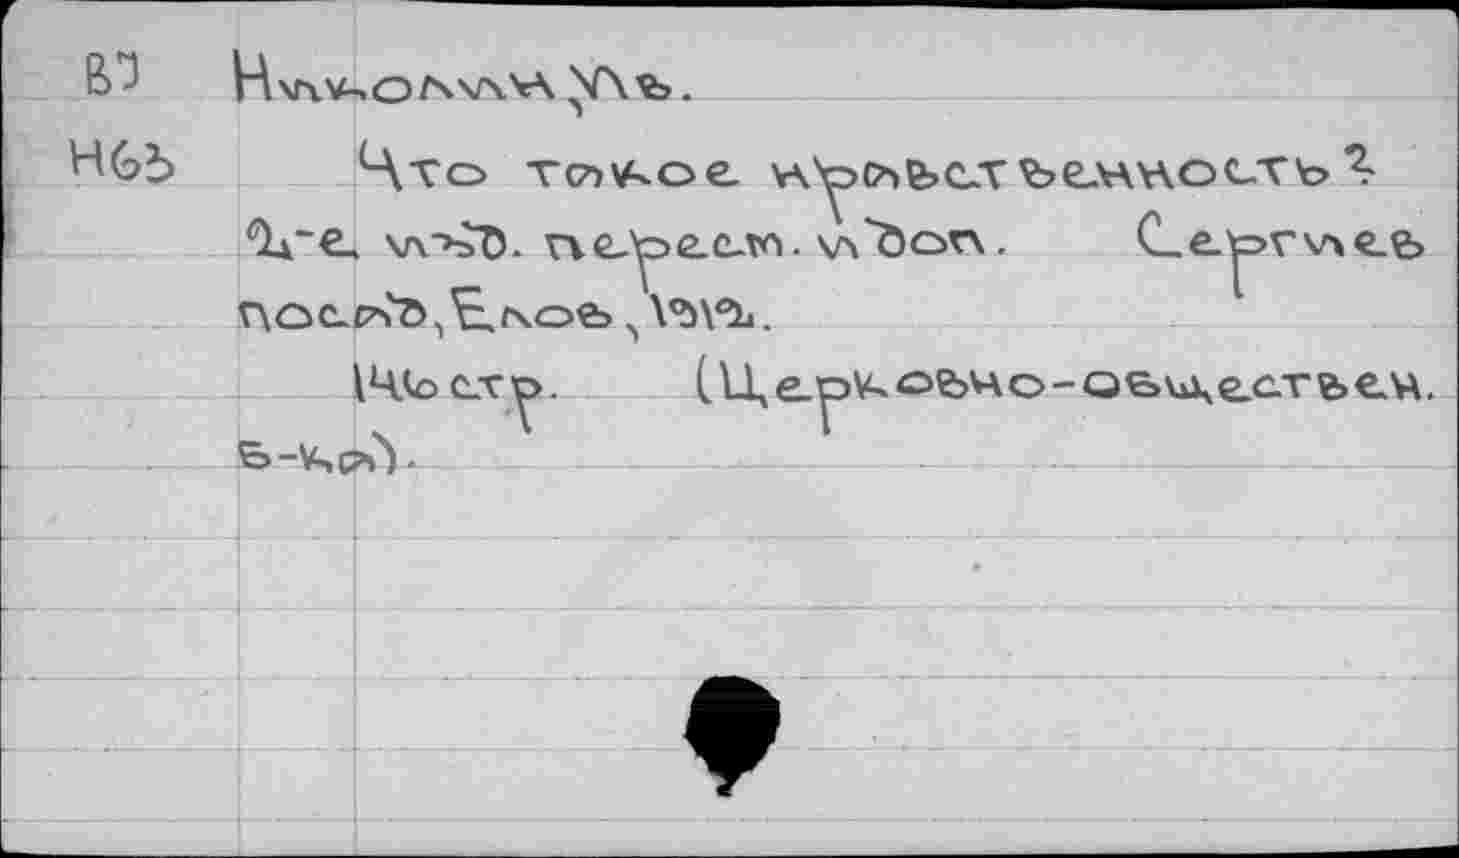 ВЭ Николин, Ип.
Н63 Что такое нравственность?
2-е изд. пересм. и доп. Сергиев
посад, Елов, 1912.
146 стр. (Церковно-обществен.
б-ка).